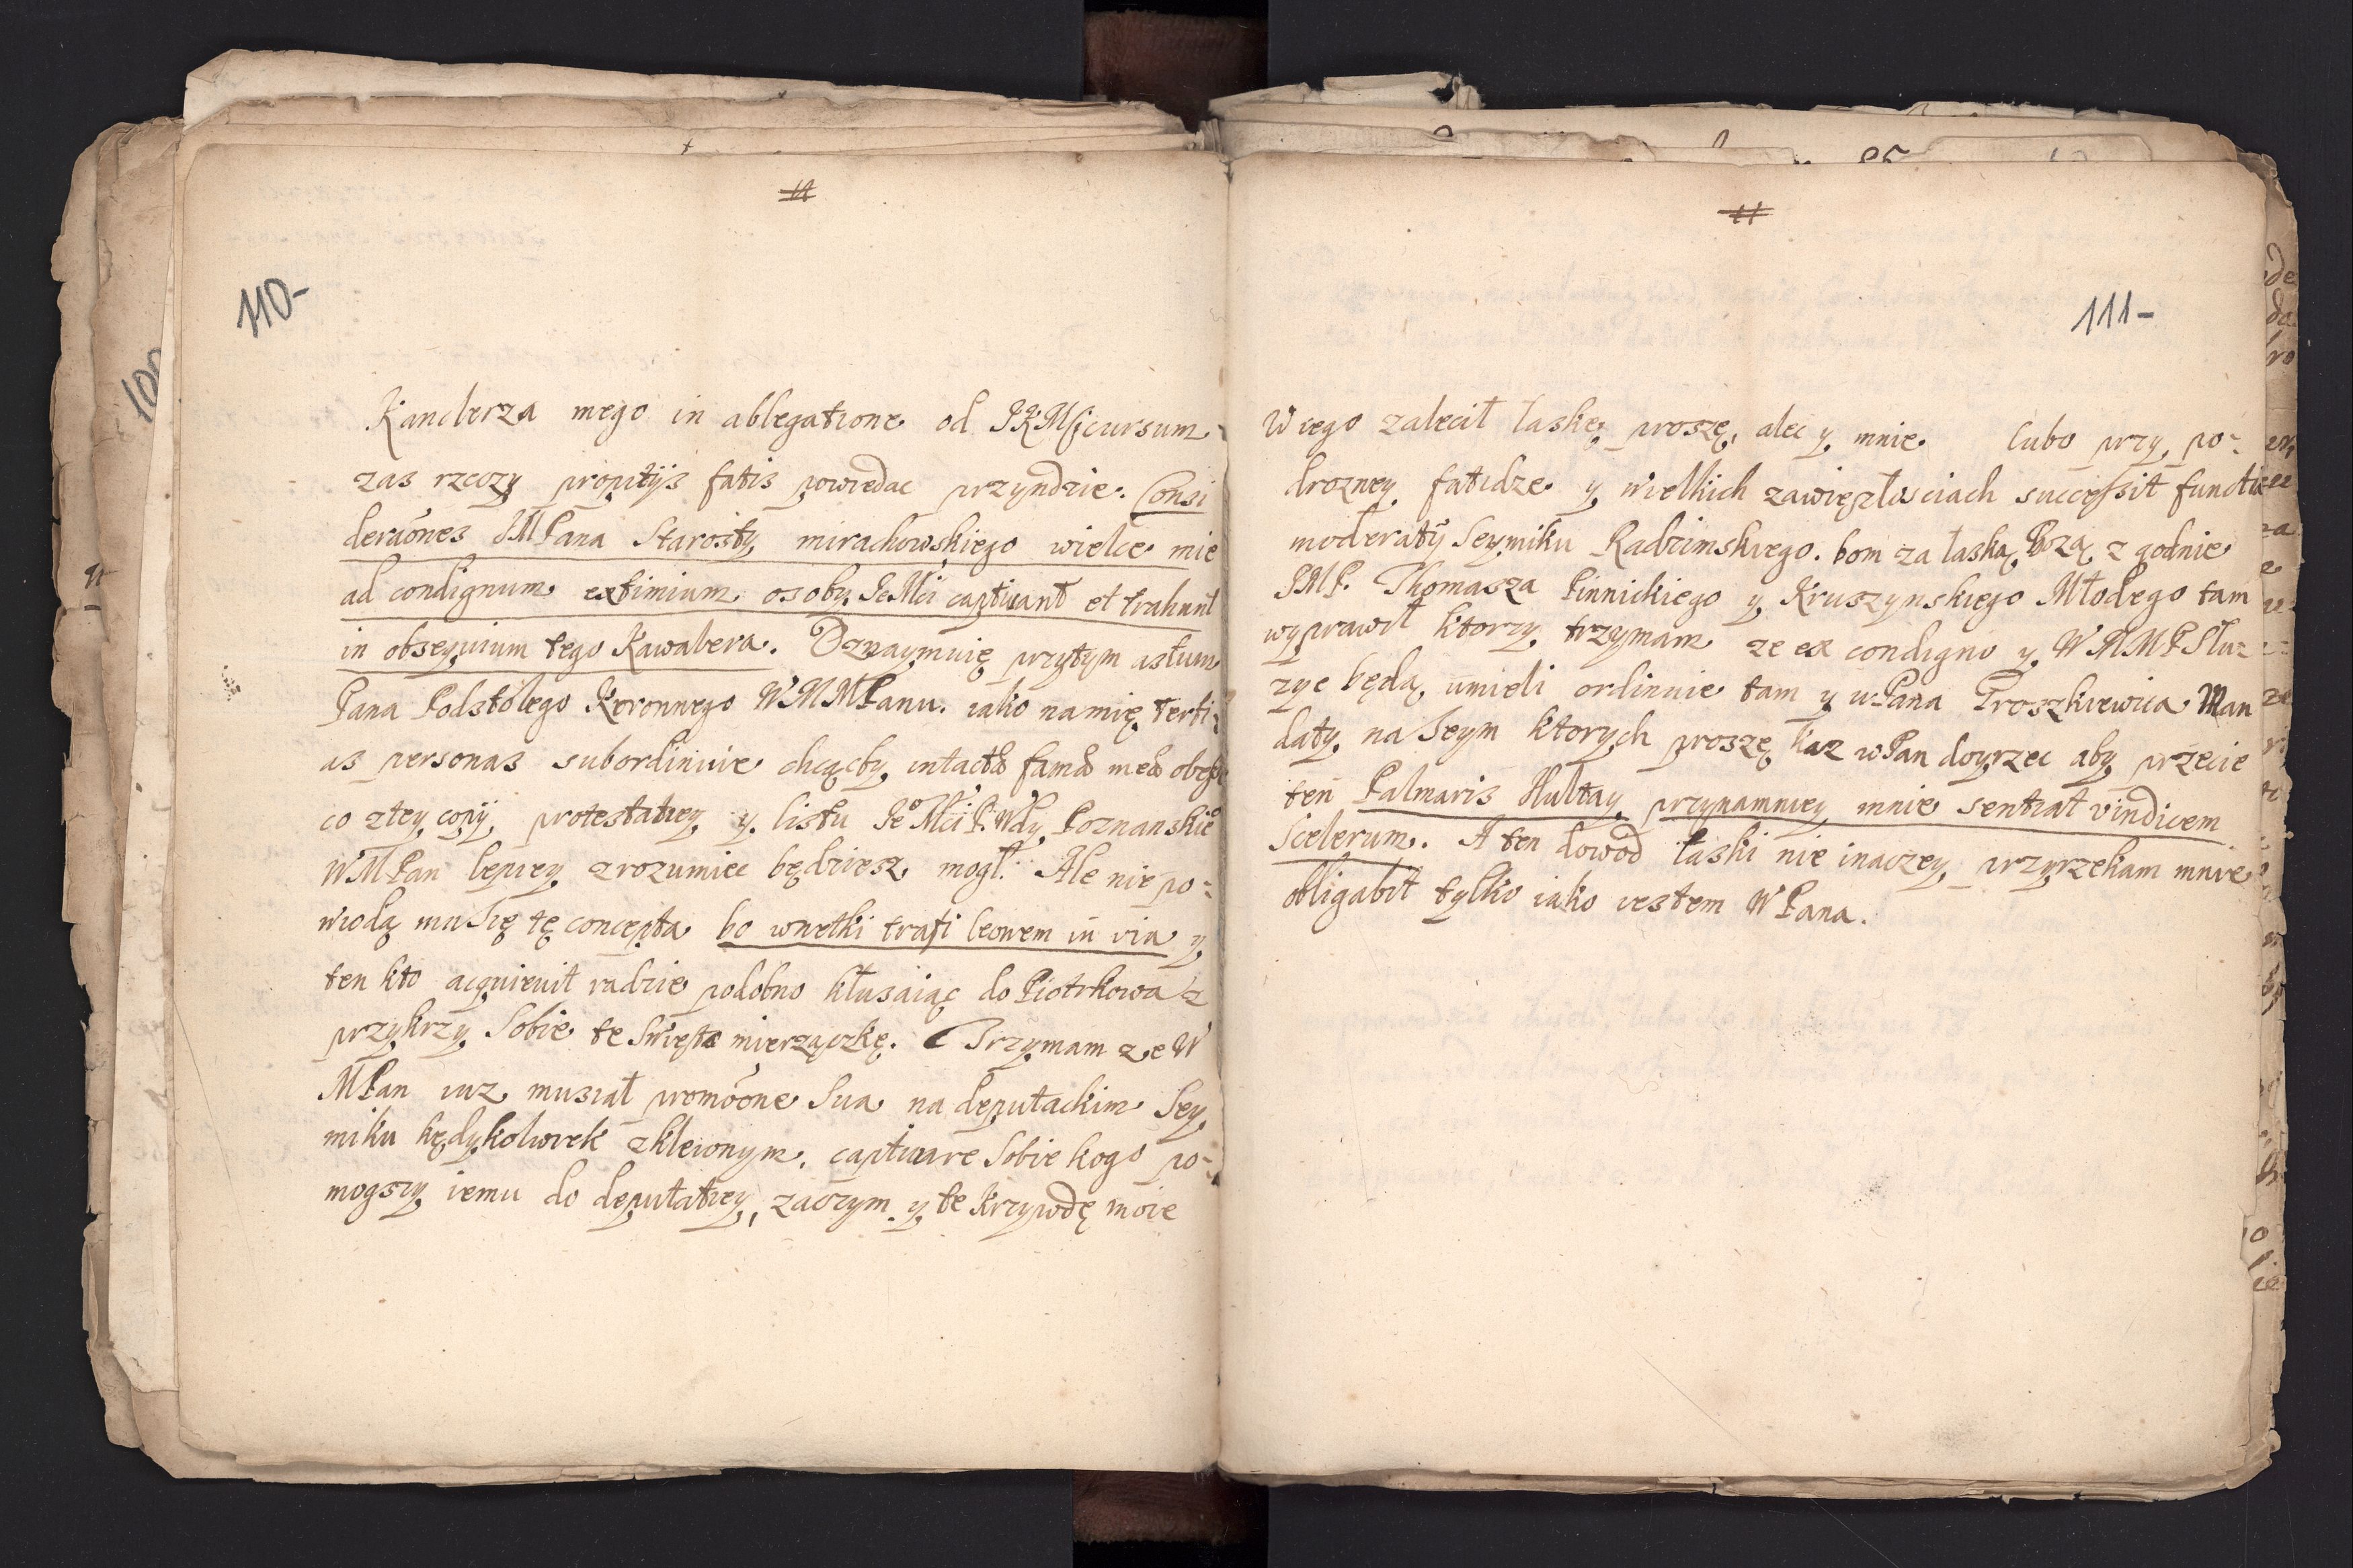 110-
Kanclerza mego in ablegatione od JKMſci cursum
zas rzeczy propitijs fatis powiedac przyndzie. Consi
deraōnes JMPana Starosty mirachowskiego wielce mie
ad condignum extimium osoby JeMci captivant et trahunt
in obseqvium tego Kawalera. Oznaymuię przytym astum
Pana Podstolego Koronnego WMMPanu. iako namię terti-
as personas subordinuie chcącby intacta fama mea
co ztey copij protestatiey y listu JeoMci P. Wdy Poznanskieo
WMPan lepiey zrozumiec będziesz mogł. Ale nie po-
wiodą mu się tę concepta bo wnetki trafi leonem in via y
ten kto acquievit radzie podobno kłusaiąc do Piotrkowa z
przykrzy Sobie te Swięta mierzączkę. Trzymam ze W
MPan iuz musiał promōone Sua na deputackim Sey
miku kędykolwiek zkleionym. captivare Sobie kogo po-
mogszy iemu do deputatiey, zaczym y te krzywdę moie
111-
W iego zalecił laskę proszę, alec y mnie lubo przy po-
drozney fatidze y wielkich zawięzłosciach successit functie
moderatij Seymiku Radzimskiego. bom za laską Bozą zgodnie
JMP. Thomasza Pinnickiego y Kruszynskiego Młodego tam
wyprawił ktorzy trzymam ze ex condigno y WMMP Słuz
zyc będą umieli ordinuie tam y uPana Proszkiewica Man
daty na Seym ktorych proszę kaz wPan doyrzec aby przecie
ten Palmaris Hultay przynamniey mnie sentiat vindicem
Scelerum. A ten dowod łaski nie inaczey przyrzekam mnie
obligabit tylko iako iestem WPana.